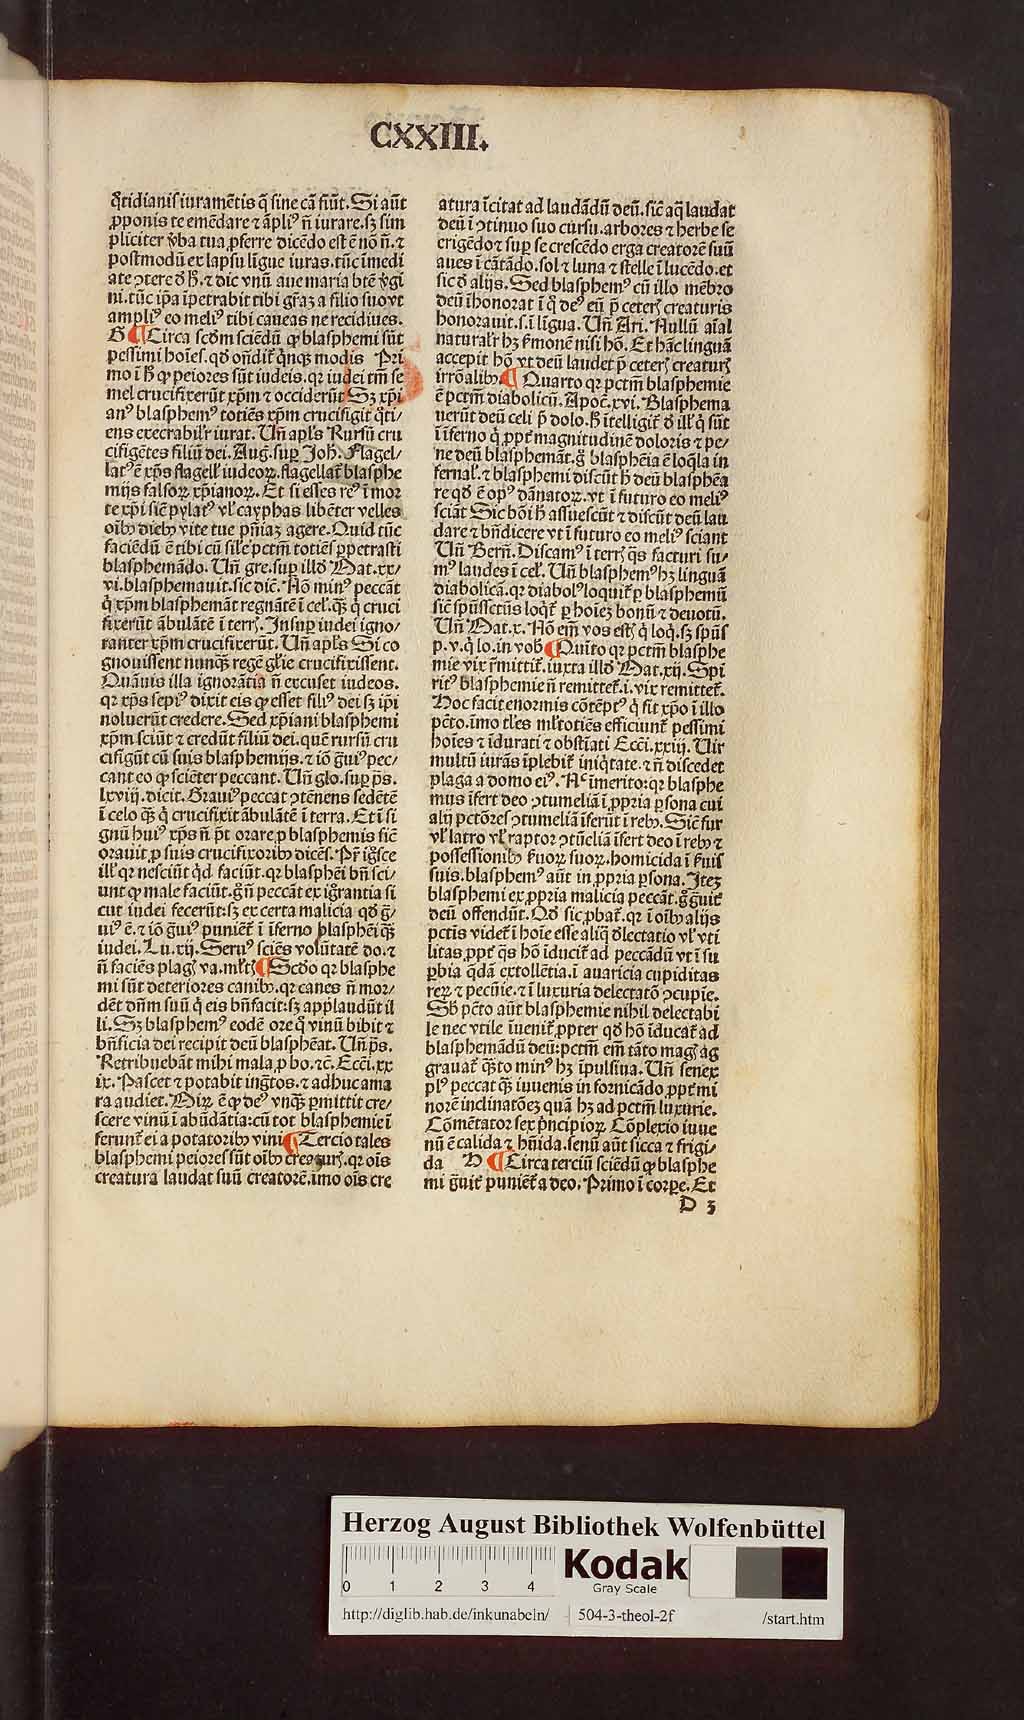 CXXIII.
q̄tidianis iuramētis q̄ sine cā fiūt. Si aūt
ꝓponis te emēdare ⁊ āpliꝰ ñ iurare.sꝫ sim
pliciter v̄ba tua ꝓferre dicēdo est ē nō ñ.⁊
postmodū ex lapsu ligue iuras. tūc īmedi
ate ꝯtere d̄ h̄.⁊ dic vnū aue maria btē v̄gi
ni. tūc ip̄a īpetrabit tibi gr̄az a filio suo vt
ampliꝰ eo meliꝰ tibi caueas ne recidiues.
B ¶ Circa scd̄m sciēdū ꝙ blasphemi sūt
pessimi hoīes. qd̄ on̄dit̄ q̄nqꝫ modis Pri
mo ī h̄ ꝙ peiores sūt iudeis. qꝛ iudei tm̄ se
mel crucifixerūt xp̄m ⁊ occiderūt Sꝫ xp̄i
anꝰ blasphemꝰ totiēs xp̄m crucifigit q̄ti/
ens execrabilr̄ iurat. Un̄ apl̄s Rursū cru
cifigētes filiū dei. Aug. suꝑ Joh̄. Flagel/
latꝰ ē xp̄s flagell̄ iudeoꝝ. flagellat̄ blasphe
mijs falsoꝝ xp̄ianoꝝ. Et si esses reꝰ ī mor
te xp̄i sic̄ pylatꝰ vl̓ cayphas libēter velles
oībꝫ diebꝫ vite tue pn̄iaꝫ agere. Quid tūc
faciēdū ē tibi cū sil̓e pctm̄ totiēs ꝑpetrasti
blasphemādo. Un̄ gre. suꝑ illd̄ Mat. xx/
vi. blasphemauit. sic dic̄. Nō minꝰ peccāt
q̄ xp̄m blasphemāt regnātē ī cel̓. qꝫ̄ q̄ cruci
fixerūt ābulātē ī terꝭ. Insuꝑ iudei igno/
ranter xp̄m crucifixerūt. Un̄ apl̄s Si co
gnouissent nunqꝫ̄ regē gl̓ie crucifixissent.
Quāuis illa ignorātia ñ excuset iudeos.
qꝛ xp̄s sepiꝰ dixit eis ꝙ esset filiꝰ dei sꝫ ip̄i
noluerūt credere. Sed xp̄iani blasphemi
xp̄m sciūt ⁊ credūt filiū dei. quē rursū cru
cifigūt cū suis blasphemijs.⁊ iō ḡuiꝰ pec/
cant eo ꝙ sciēter peccant. Un̄ glo. suꝑ ps̄.
lxviij. dicit. Grauiꝰ peccat ꝯtēnens sedētē
ī celo qꝫ̄ q̄ crucifixit ābulātē ī terra. Et ī si
gnū huiꝰ xp̄s ñ p̄t orare ꝓ blasphemis sic̄
orauit ꝓ suis crucifixoribꝫ dicēs. Pr̄ ig̓sce
ill̓ qꝛ nesciūt qd̄ faciūt. qꝛ blasphēi bn̄ sci/
unt ꝙ male faciūt. ḡ ñ peccāt ex ig̓rantia si
cut iudei fecerūt. sꝫ ex certa malicia qd̄ ḡ/
uiꝰ ē.⁊ iō ḡuiꝰ puniēt̄ ī īferno blasphēi qꝫ̄
iudei. Lu. xij. Seruꝰ sciēs volūtatē do.⁊
ñ faciēs plagꝭ va. ml̓tꝭ ¶ Scd̄o qꝛ blasphe
mi sūt deteriores canibꝫ. qꝛ canes ñ mor/
dēt dn̄m suū q̄ eis bn̄facit: sꝫ applaudūt il
li. Sꝫ blasphemꝰ eodē ore q̄ vinū bibit ⁊
bn̄ficia dei recipit deū blasphēat. Un̄ ps̄.
Retribuebāt mihi mala ꝓ bo.⁊c̄. Ecci. xx
ix. Pascet ⁊ potabit ing̓tos.⁊ adhuc ama
ra audiet. Miꝝ ē ꝙ deꝰ vnqꝫ̄ ꝑmittit cre/
scere vinū ī abūdātia: cū tot blasphemie ī
ferunt̄ ei a potatoribꝫ vini ¶ Tercio tales
blasphemi peiores sūt oībꝫ creaturꝭ. qꝛ oīs
creatura laudat suū creatorē. imo oīs cre
atura īcitat ad laudādū deū. sic̄ aq̄ laudat
deū ī ꝯtinuo suo cursu. arbores ⁊ herbe se
erigēdo ⁊ suꝑ se crescēdo erga creatorē suū
aues ī cātādo. sol ⁊ luna ⁊ stelle ī lucēdo. et
sic d̄ alijs. Sed blasphemꝰ cū illo mēbro
deū īhonorat ī q̄ deꝰ eū p̄ ceterꝭ creaturis
honorauit. s. ī ligua. Un̄ Ari. Nullū aīal
naturalr̄ hꝫ s̄monē nisi hō. Et hāc linguā
accepit hō vt deū laudet p̄ ceterꝭ creaturꝭ
irrōalibꝫ ¶ Quarto qꝛ pctm̄ blasphemie
ē pctm̄ diabolicū. Apoc̄. xvi. Blasphema
uerūt deū celi p̄ dolo. h̄ ītelligit̄ d̄ ill̓ q̄ sūt
ī īferno q̄ ꝓpt̄ magnitudinē doloris ⁊ pe/
ne deū blasphemāt. ḡ blasphēia ē loq̄la in
fernal̓.⁊ blasphemi discūt h̄ deū blasphēa
re qd̄ ē opꝰ dānatoꝝ. vt ī futuro eo meliꝰ
sciāt Sic bōi h̄ assuescūt ⁊ discūt deū lau
dare ⁊ bn̄dicere vt ī futuro eo meliꝰ sciant
Un̄ Bern̄. Discamꝰ ī terꝭ q̄s facturi su/
mꝰ laudes ī cel̓. Un̄ blasphemꝰ hꝫ linguā
diabolicā. qꝛ diabolꝰ loquit̄ ꝑ blasphemū
sic̄ sp̄ūssctūs loqt̄ ꝑ hoīeꝫ bonū ⁊ deuotū.
Un̄ Mat. x. Nō em̄ vos estꝭ q̄ loq̄. sꝫ sp̄ūs
p. v. q̄ lo. in vob̄ ¶ Quīto qꝛ pctm̄ blasphe
mie vix r̄mittit̄. iuxta illd̄ Mat. xij. Spi
ritꝰ blasphemie ñ remittet̄. i. vix remittet̄.
Hoc facit enormis cōtēptꝰ q̄ fit xp̄o ī illo
pctō. īmo tl̓es ml̓totiēs efficiunt̄ pessimi
hoīes ⁊ īdurati ⁊ obstīati Ecci. xxiij. Uir
multū iurās īplebit̄ iniq̄tate.⁊ ñ discedet
plaga a domo eiꝰ. Ac̄ īmerito: qꝛ blasphe
mus īfert deo ꝯtumeliā ī ꝓpria ꝑsona cui
alij pctōres ꝯtumeliā īferūt ī rebꝫ. Sic̄ fur
vl̓ latro vl̓ raptor ꝯtūeliā īfert deo ī rebꝫ ⁊
possessionibꝫ s̄uoꝝ suoꝝ. homicida ī s̄uis
suis. blasphemꝰ aūt in ꝓpria ꝑsona. Iteꝫ
blasphemi ex ꝓpria malicia peccāt. ḡ ḡuiꝰ
deū offendūt. Qd̄ sic ꝓbat̄. qꝛ ī oībꝫ alijs
pctīs videt̄ ī hoīe esse aliq̄ d̄lectatio vl̓ vti
litas ꝓpt̄ q̄s hō īducit̄ ad peccādū vt ī su
ꝑbia q̄dā extollētia. ī auaricia cupiditas
reꝝ ⁊ pecūie.⁊ ī luxuria delectatō ꝯcupīe.
Sꝫ pctō aūt blasphemie nihil delectabi
le nec vtile īuenit̄ ꝓpter qd̄ hō īducat̄ ad
blasphemādū deū: pctm̄ em̄ tāto magꝭ ag
grauat̄ qꝫ̄to minꝰ hꝫ īpulsiua. Un̄ senex
plꝰ peccat qꝫ̄ iuuenis in fornicādo ꝓpt̄ mi
norē inclinatōeꝫ quā hꝫ ad pctm̄ luxurie.
Cōmētator sex p̄ncipioꝝ. Cōplexio iuue
nū ē calida ⁊ hūida. senū aūt sicca ⁊ frigi/
da H ¶ Circa terciū sciēdū ꝙ blasphe
mi ḡuit̄ puniēt̄ a deo. Primo ī corꝑe. Et
D 3
Herzog August Bibliothek Wolfenbüttel
0 1 2 3 4
Kodak
Gray Scale
http://diglib.hab.de/inkunabeln/ 504-3-theol-2f /start.htm